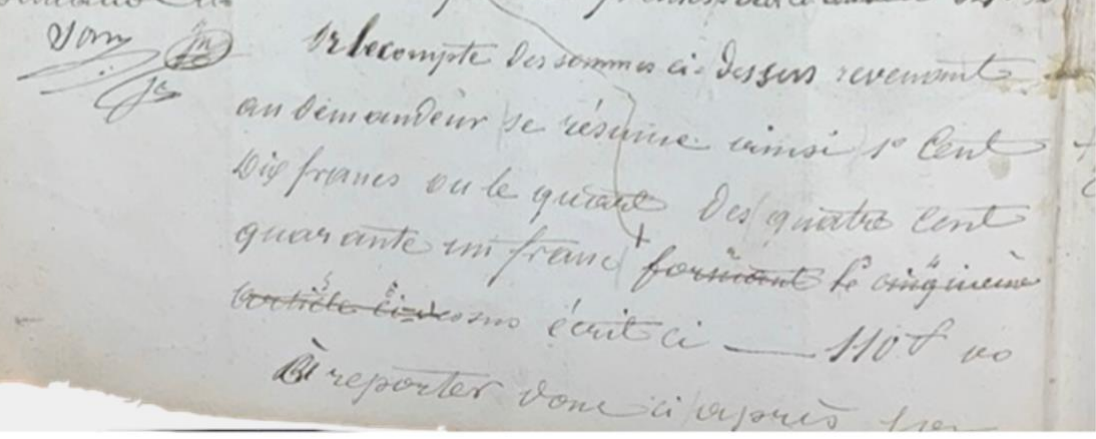 Or le compte des sommes ci-dessus revenant
au demandeur se résume ainsi 1° Cent
Dix francs ou le quart des quatre cent
quarante un franc formant le cinquième
article ci-dessus écrit ci — 110 f
À reporter donc ci après